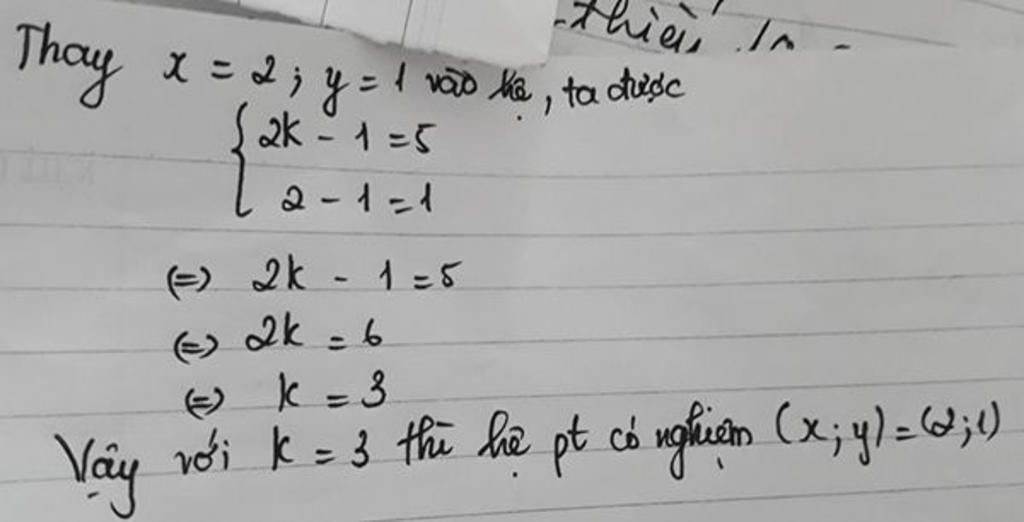 thiên
Thay x = 2; y = 1 vào hệ, ta được
{ 2k - 1 = 5
2 - 1 = 1
(=) 2k - 1 = 5
(=) 2k = 6
(=) k = 3
Vậy với k = 3 thì hệ pt có nghiệm (x; y) = (2; 1)